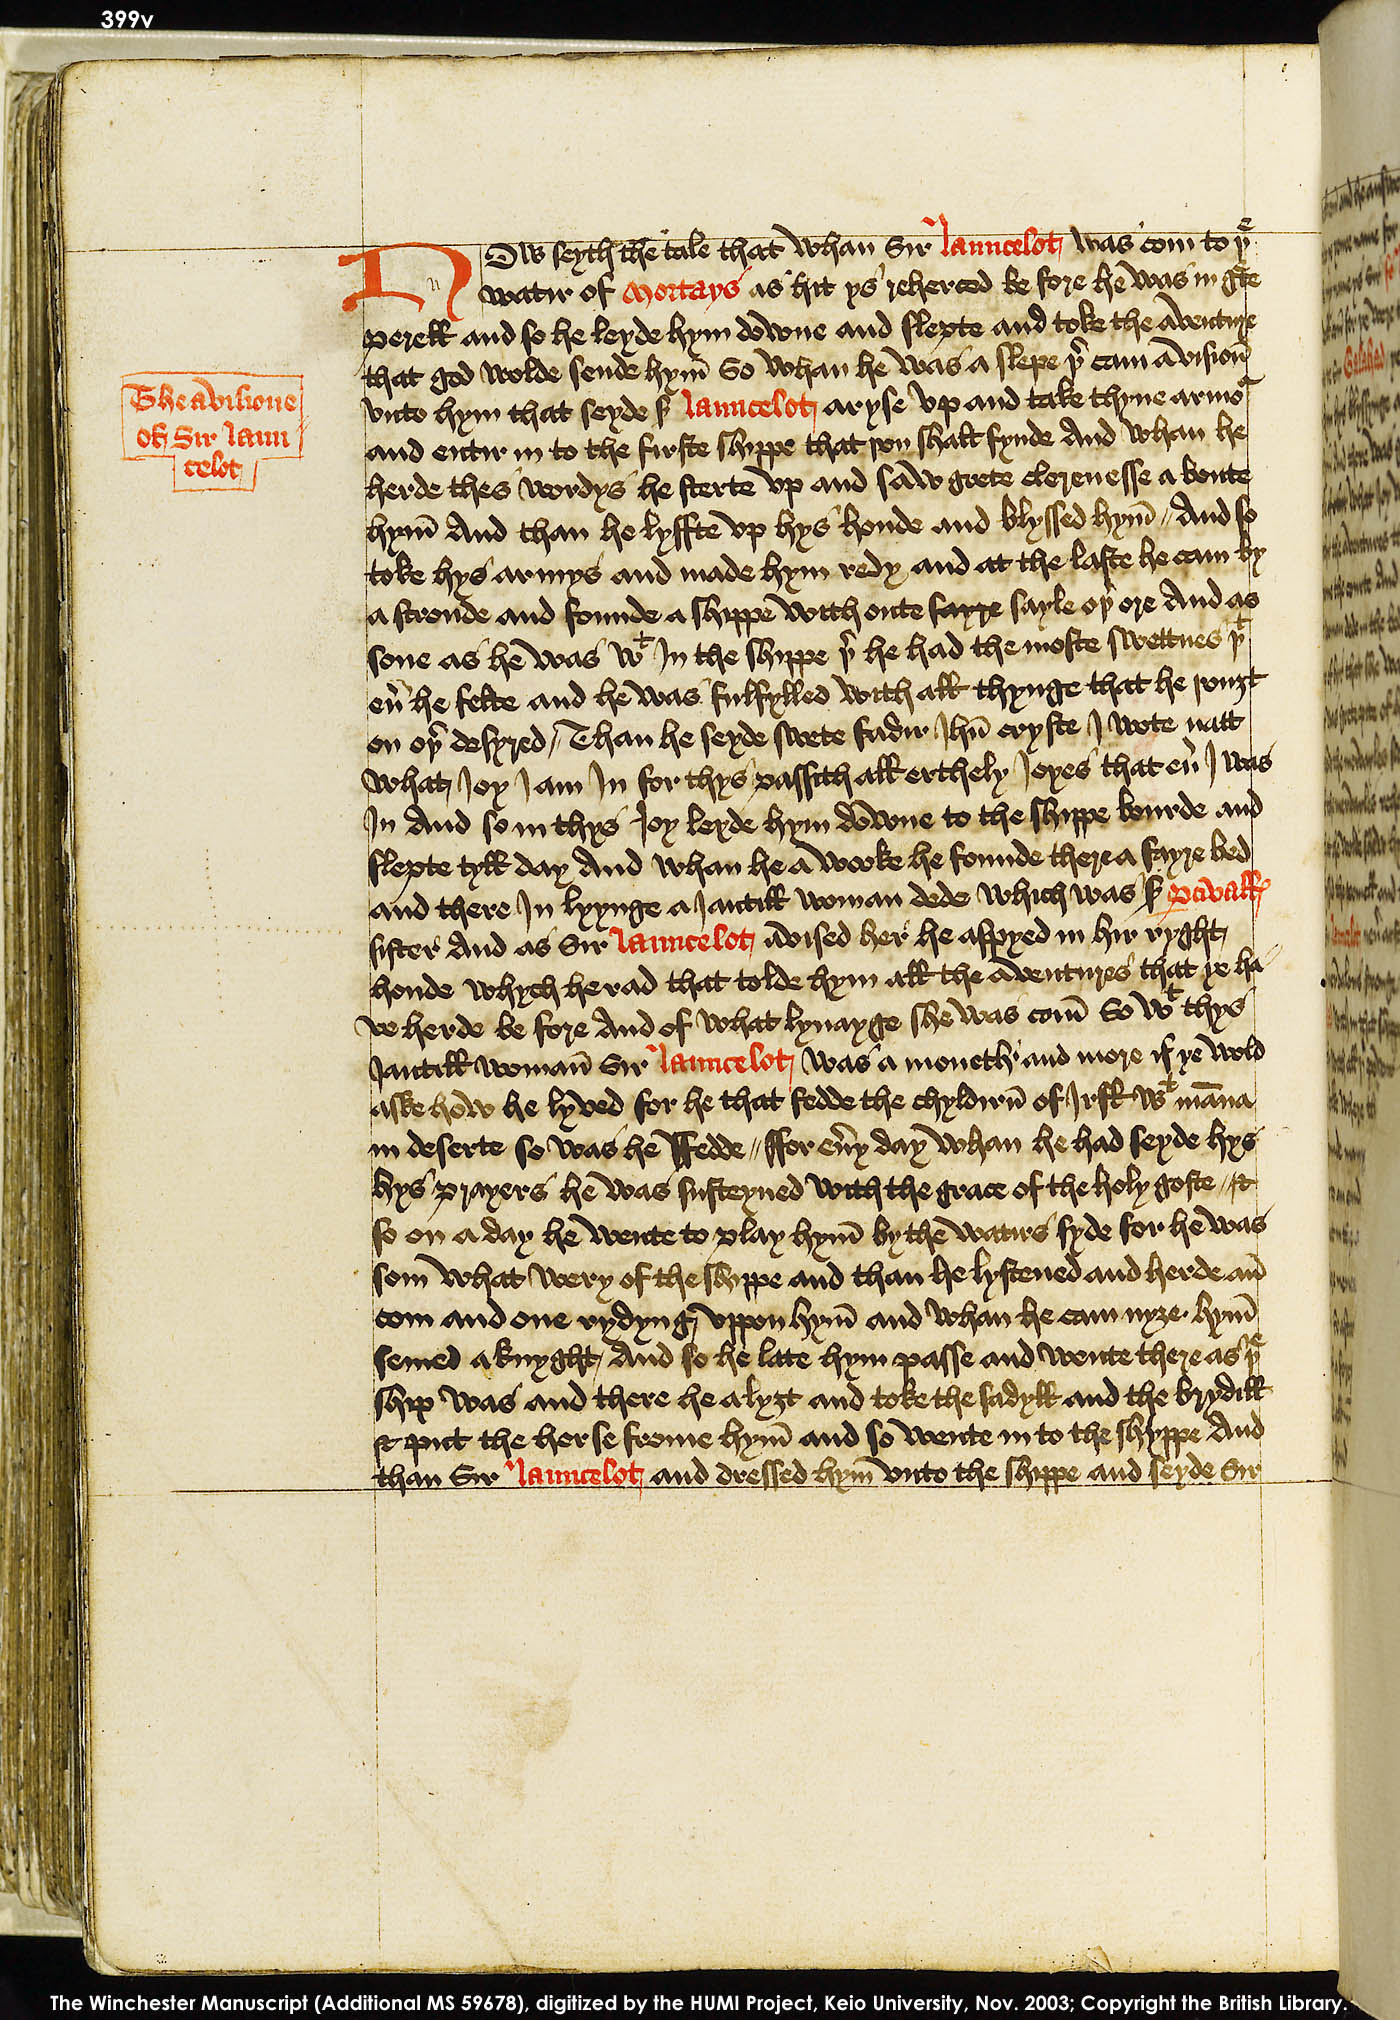 399v
NOw seyth the tale that whan Sir Launcelot was com to þe
watir of Mortays as hit ys reherced be fore he was in gͬte
perell and so he leyde hym downe and slepte and toke the aventure
that god wolde sende hym̄ So whan he was a slepe þͬ cam a vision̄
The avisione
of Sir Laun
celot
vnto hym that seyde sͬ Launcelot aryse vp and take thyne armoͬ
and entir in to the firste shippe that þou shalt fynde And whan he
herde thes wordys he sterte vp and saw grete clerenesse a boute
hym̄ And than he lyffte vp hys honde and blyssed hym̄ // And so
toke hys armys and made hym redy and at the laste he cam by
a stronde and founde a shippe with oute fayre sayle oþͬ ore And as
sone as he was wͭ In the shippe þͬ he had the moste swettnes þͭ
eu̾ he felte and he was fulfylled with all thynge that he þouȝt
on oþͬ desyred // Than he seyde swete fadir Jhū cryste I wote natt
what Joy I am In for thys passith all erthely Joyes that eu̾ I was
In And so in thys Joy leyde hym downe to the shippe bourde and
slepte tyll day And whan he a wooke he founde there a fayre bed
and there In lyynge a Jantill woman dede which was sͬ Pcivall
sister And as Sir Launcelot avised her he aspyed in hir ryght
honde whych he rad that tolde hym all the aventures that ye ha
ve herde be fore And of what lynayge she was com̄ So wͭ thys
Jantill woman̄ Sir Launcelot was a moneth and more if ye wold
aske how he lyved for he that fedde the chyldirn̄ of Jrsll wͭ māna
in deserte so was he ffedde // ffor eu̾y day whan he had seyde hys
hys prayers he was susteyned with the grace of the holy goste // &
so on a day he wente to play hym̄ by the watirs syde for he was
som what wery of the shippe and than he lystened and herde an̄
com and one rydyng vppon hym̄ and whan he cam nyȝe hym̄
semed a knyght And so he late hym passe and wente there as þe
ship was and there he alyȝt and toke the sadyll and the brydill
& put the horse frome hym̄ and so wente in to the shyppe And
than Sir Launcelot and dressed hym̄ vnto the shippe and seyde Sir
The Winchester Manuscript (Additional MS 59678), digitized by the HUMI Project, Keio University, Nov. 2003; Copyright the British Library.